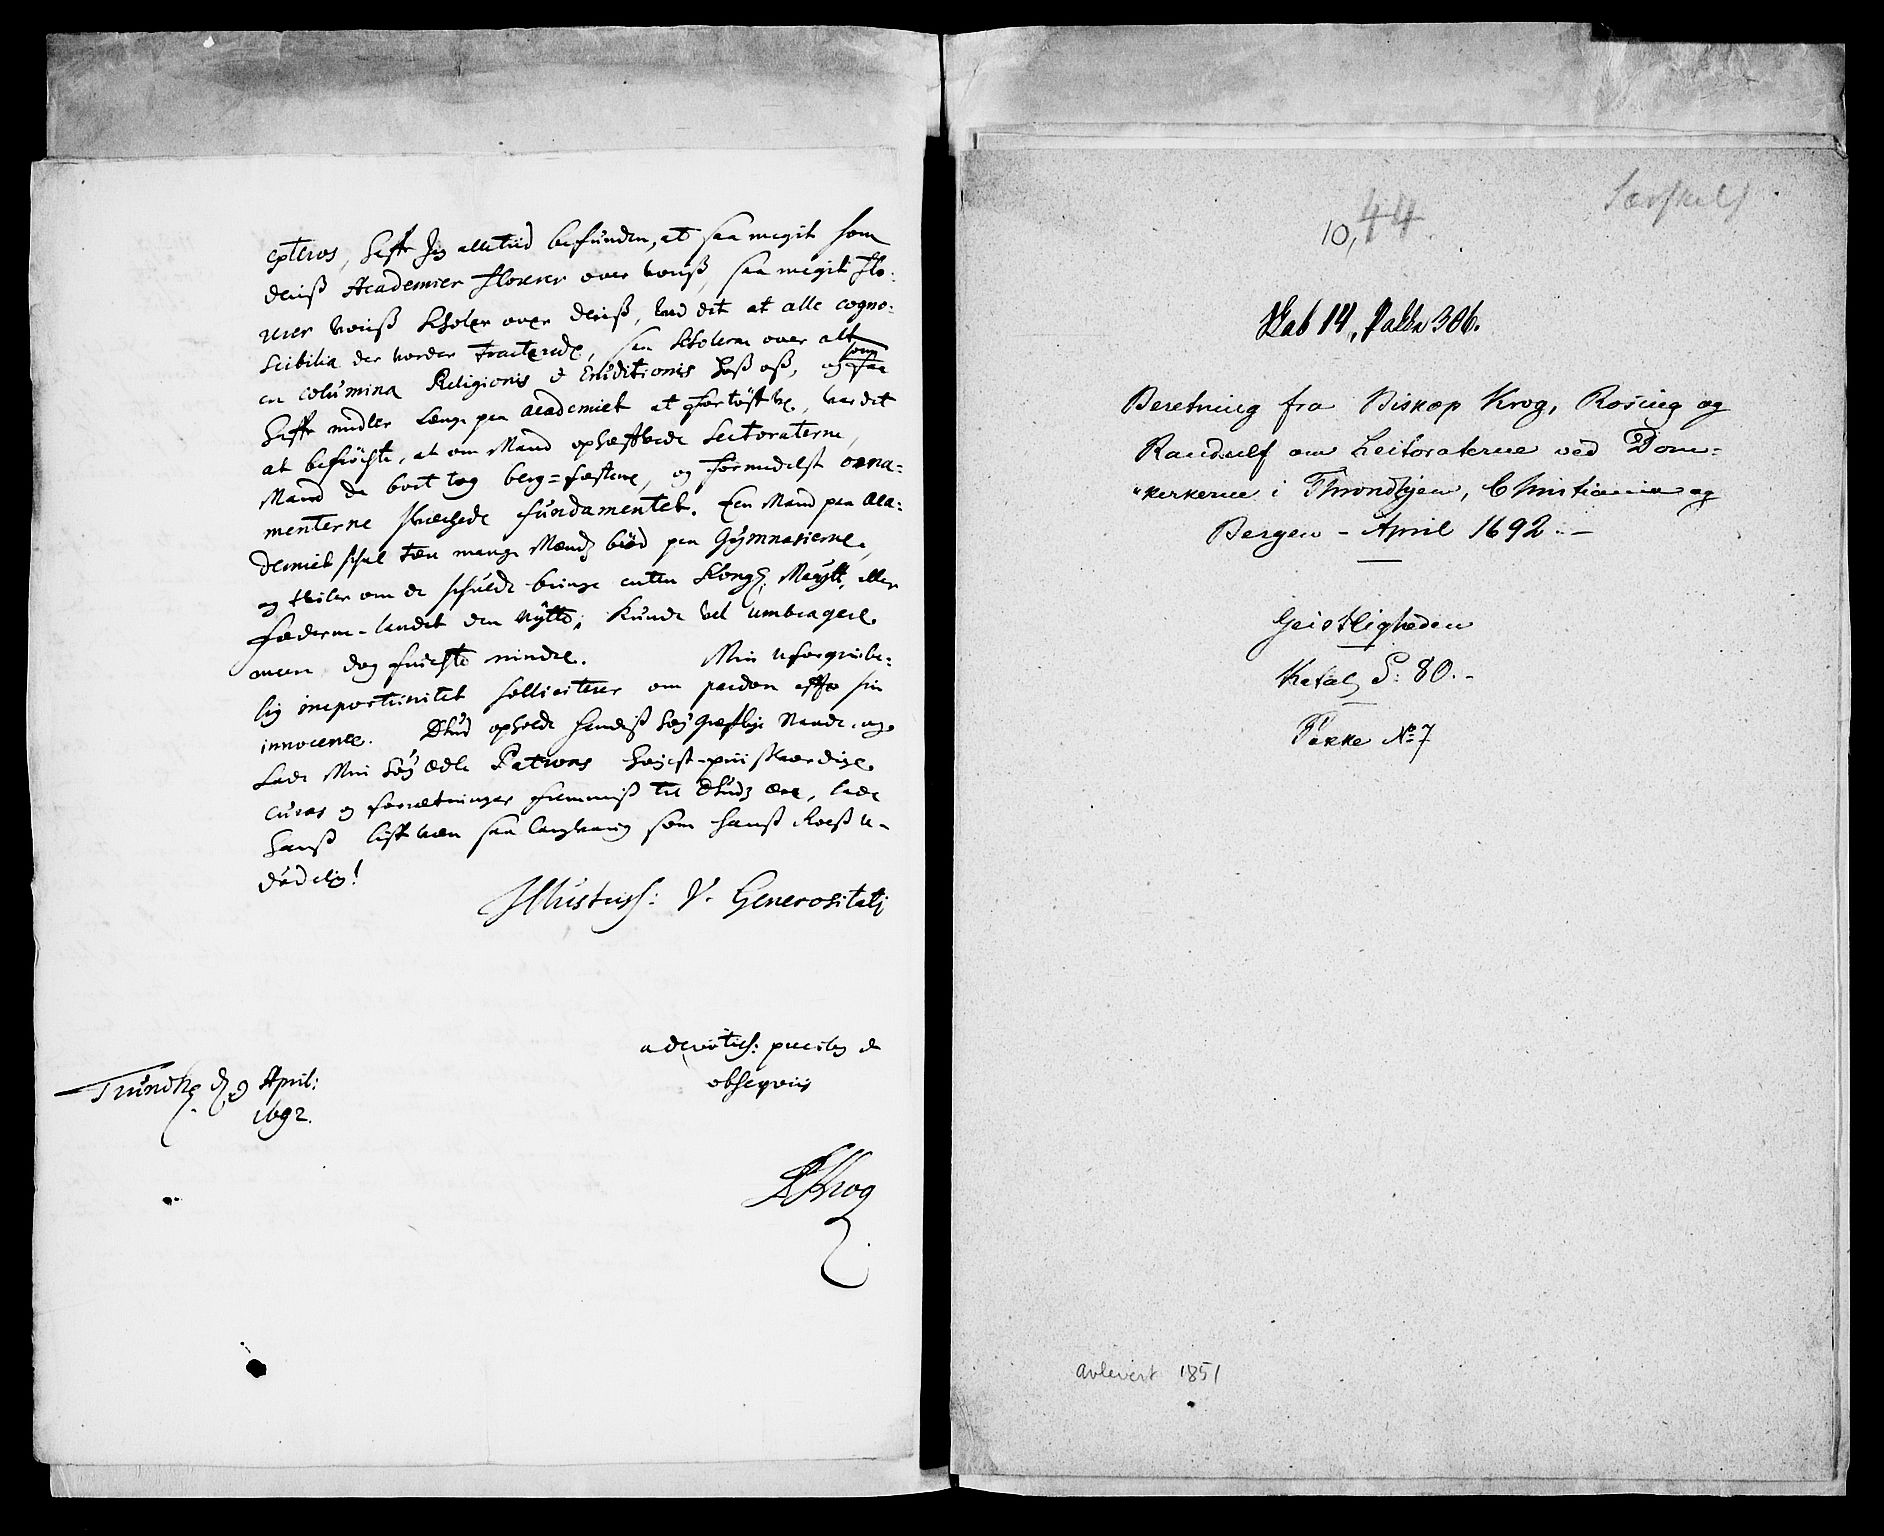 epteros, haffr Jeg alletiid befunden, at saa megit som
deriß Academier florerer over voriß, saa megit flo-
rerer voriß Scholer over deriß, Ved det at alle cogno-
scibilia der vorder tracterede, saa Scholerne over alt
som
en columna Religionis & Eruditionis hoß oß, og saa
haffr midler længe paa academiet at, var det
at befrÿchte, at om Mand ophæffvede Lectoraterne,
Mand da bort tog berg=fæstene, og formedelst orna-
menterne svæchede fundamentet. Een Mand paa Aca-
demiet schal tæn mange Mænds brød paa Gymnasierne,
og tviler om de schulde bringe enten Kongl: Maÿtt. eller
fæderne-landet den nÿtte; Kunde vel umbragere
meere dog fruchte mindre. Min uforgribe-
lig importunitet solliciterer om pardon effter sin
innocence. Gud opholde hendiß høÿ Græflige Naade, og
Lade Min høÿ ædle Patrons høÿest-prisværdige
curas og forretninger fremmiß til Guds ære, lade
hanß liff være saa langvarig som hanß Roeß u-
dødelig!
Illustriss: V. Generositatj
adevotiss: precibg &
obseqviis
Trundhe d. 9 April:
1692.
Krog
Særskilt
10, 44
Skab 14, Pakke 306.
Beretning fra Biskop Krog, Rosing og
Randulf om Lectoraterne ved Dom-
"kirkerne i Throndhjem, Christiania og
Bergen - April 1692. -
Geistligheden
Katal. S: 80. -
Pakke No 7
avlevert 1851